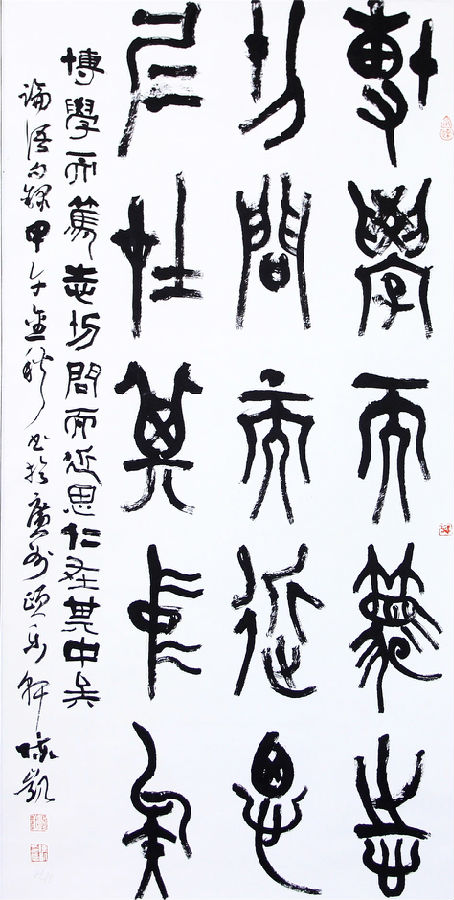 博學而篤志
切問而近思
仁在其中矣
博學而篤志切問而近思仁在其中矣
論語句甲午金秋書於廣州軒